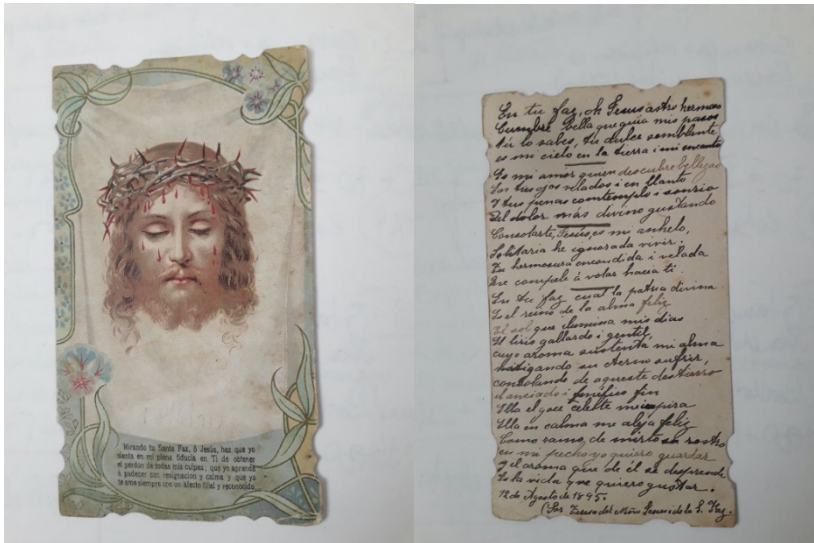 Mirando tu Santa Faz, ó Jesús, haz que yo
sienta en mí plena fiducia en Ti de obtener
el perdon de todas mis culpas; que yo aprenda
á padecer con resignacion y calma y que yo
te ame siempre con un afecto filial y reconocido
En tu faz, oh Jesus astro hermoso
Cumbre bella que guia mis pasos
Tú lo sabes, tu dulce semblante
es mi cielo en la tierra i mi encanto
Es mi amor quien descubre bellezas
En tus ojos velados i en llanto
Y tus penas comtemplo i sonrio
Del dolor más divino gustando
Consolarte, Jesús, es mi anhelo,
Solitaria he ignorada vivir.
Tu hermosura encondida i velada
me compele á volar hacia ti.
En tu faz cual la patria divina
Es el reino de la alma feliz
El sol que ilumina mis dias
El lirio gallardo i gentil,
cuyo aroma sustenta mi alma
su tierno sufrir,
consolando de aqueste destierro
el anciado i fin
Ella el goce celeste me inspira
Ella en calma me aleja feliz
Como ramo de mirto su rostro
en mi pecho yo quiero guardar
Y el aroma que de él se desprende
Es la vida que quiero gustar.
12 de Agosto de 1895.
(Sor Teresa del Niño Jesus i de la S. Faz.